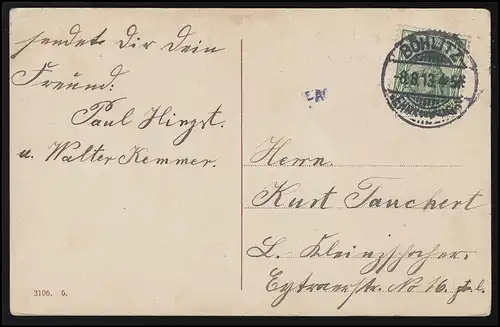 sendet Dir Dein
Freund:
Paul Hingst.
u. Walter Kemmer.
3106. 6.
GÖRLITZ
-8.8.13.4-5N
Herrn
Kurt Tauchert
L. Kleinzschocher.
str. No 16. pt. l.